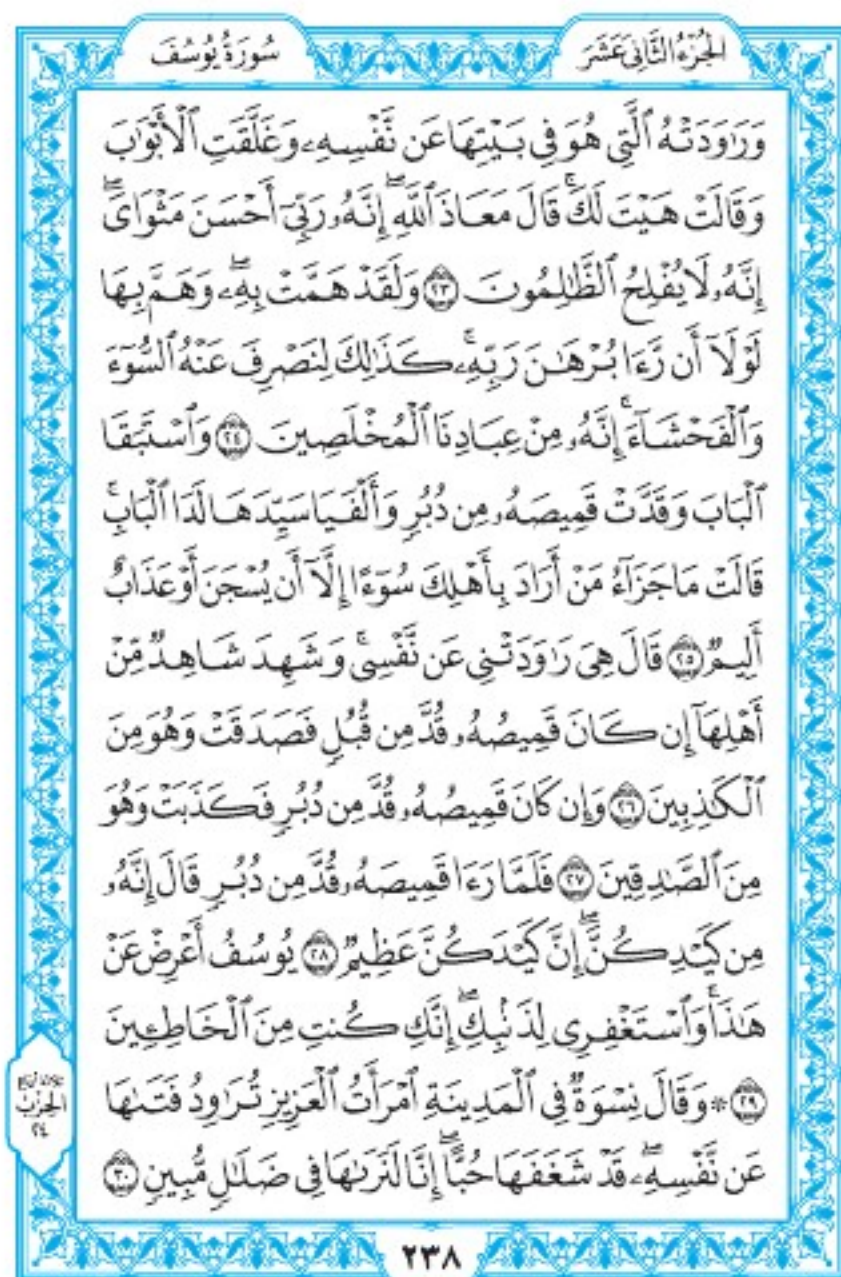 الجزء الثاني عشر
سورة يوسف
وَرَٰوَدَتْهُ ٱلَّتِى هُوَ فِى بَيْتِهَا عَن نَّفْسِهِۦ وَغَلَّقَتِ ٱلْأَبْوَٰبَ
وَقَالَتْ هَيْتَ لَكَ ۚ قَالَ مَعَاذَ ٱللَّهِ ۖ إِنَّهُۥ رَبِّىٓ أَحْسَنَ مَثْوَاىَ ۖ
إِنَّهُۥ لَا يُفْلِحُ ٱلظَّٰلِمُونَ ٢٣ وَلَقَدْ هَمَّتْ بِهِۦ ۖ وَهَمَّ بِهَا
لَوْلَآ أَن رَّءَا بُرْهَٰنَ رَبِّهِۦ ۚ كَذَٰلِكَ لِنَصْرِفَ عَنْهُ ٱلسُّوٓءَ
وَٱلْفَحْشَآءَ ۚ إِنَّهُۥ مِنْ عِبَادِنَا ٱلْمُخْلَصِينَ ٢٤ وَٱسْتَبَقَا
ٱلْبَابَ وَقَدَّتْ قَمِيصَهُۥ مِن دُبُرٍ وَأَلْفَيَا سَيِّدَهَا لَدَا ٱلْبَابِ ۚ
قَالَتْ مَا جَزَآءُ مَنْ أَرَادَ بِأَهْلِكَ سُوٓءًا إِلَّآ أَن يُسْجَنَ أَوْ عَذَابٌ
أَلِيمٌ ٢٥ قَالَ هِىَ رَٰوَدَتْنِى عَن نَّفْسِى ۚ وَشَهِدَ شَاهِدٌ مِّنْ
أَهْلِهَآ إِن كَانَ قَمِيصُهُۥ قُدَّ مِن قُبُلٍ فَصَدَقَتْ وَهُوَ مِنَ
ٱلْكَٰذِبِينَ ٢٦ وَإِن كَانَ قَمِيصُهُۥ قُدَّ مِن دُبُرٍ فَكَذَبَتْ وَهُوَ
مِنَ ٱلصَّٰدِقِينَ ٢٧ فَلَمَّا رَءَا قَمِيصَهُۥ قُدَّ مِن دُبُرٍ قَالَ إِنَّهُۥ
مِن كَيْدِكُنَّ ۖ إِنَّ كَيْدَكُنَّ عَظِيمٌ ٢٨ يُوسُفُ أَعْرِضْ عَنْ
هَٰذَا ۚ وَٱسْتَغْفِرِى لِذَنۢبِكِ ۖ إِنَّكِ كُنتِ مِنَ ٱلْخَاطِـِٔينَ
٢٩ * وَقَالَ نِسْوَةٌ فِى ٱلْمَدِينَةِ ٱمْرَأَتُ ٱلْعَزِيزِ تُرَٰوِدُ فَتَىٰهَا
عَن نَّفْسِهِۦ ۖ قَدْ شَغَفَهَا حُبًّا ۖ إِنَّا لَنَرَىٰهَا فِى ضَلَٰلٍ مُّبِينٍ ٣٠
ثلاثة أرباع
الحزب
٢٤
٢٣٨